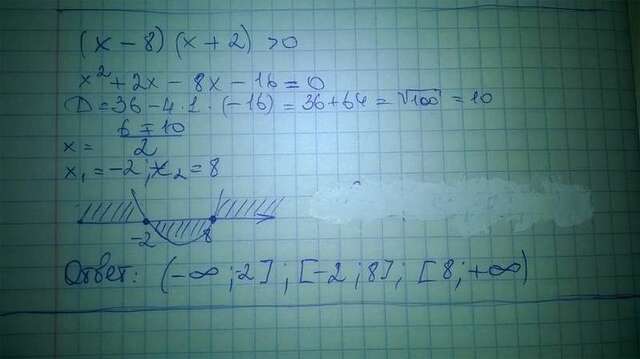 (x - 8) (x + 2) > 0
x² + 2x - 8x - 16 = 0
D = 36 - 4 · 1 · (-16) = 36 + 64 = √100 = 10
x = (6 ∓ 10) / 2
x₁ = -2 ; x₂ = 8
-2 8
Ответ: (-∞ ; -2] ; [-2 ; 8] ; [8 ; +∞)